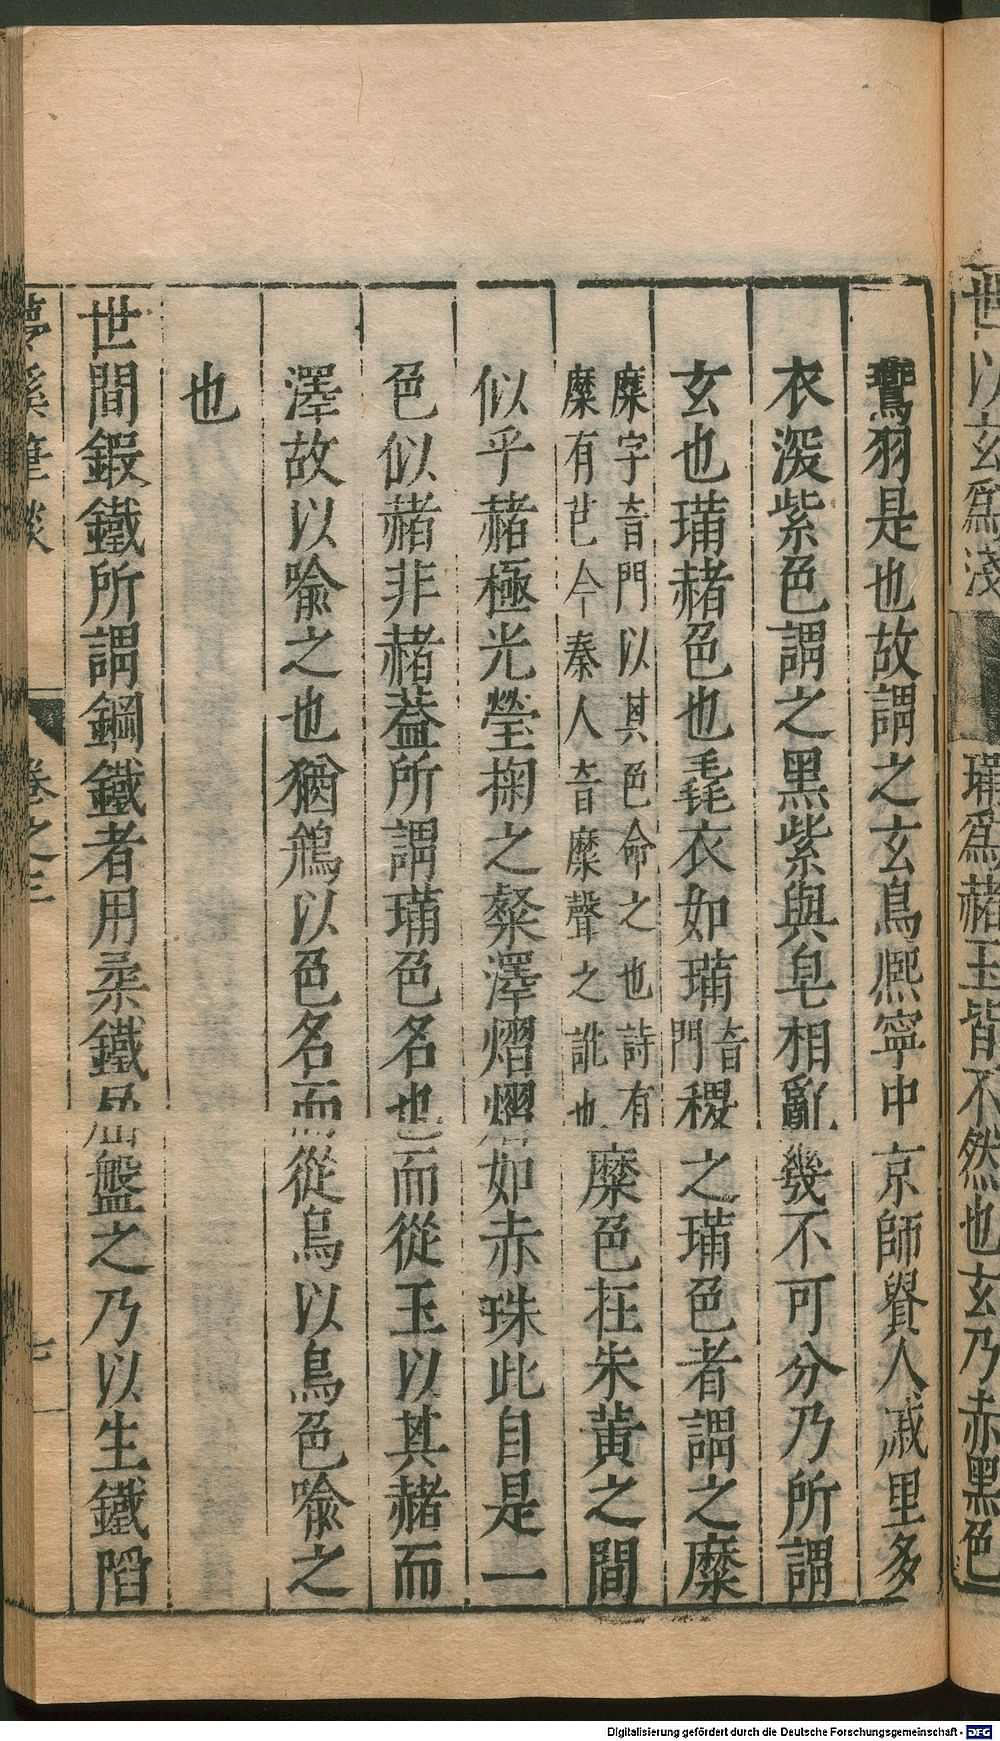 世以玄爲淺
璊爲赭玉皆不然也玄乃赤黑色
鷰羽是也故謂之玄鳥熈寧中京師貴人戚里多
衣深紫色謂之黑紫與皂相亂幾不可分乃所謂
玄也璊赭色也毳衣如璊音門稷之璊色者謂之穈
穈字音門以其色命之也詩有
穈有芑今秦人音糜聲之訛也
穈色在朱黄之間
似乎赭極光瑩掬之粲澤熠熠如赤珠此自是一
色似赭非赭葢所謂璊色名也而從玉以其赭而
澤故以喻之也猶鶊以色名而從鳥以鳥色喻之
也
世間鍛鐵所謂鋼鐵者用柔鐵屈盤之乃以生鐵陷
夢溪筆談 卷之三 七
Digitalisierung gefördert durch die Deutsche Forschungsgemeinschaft - DFG